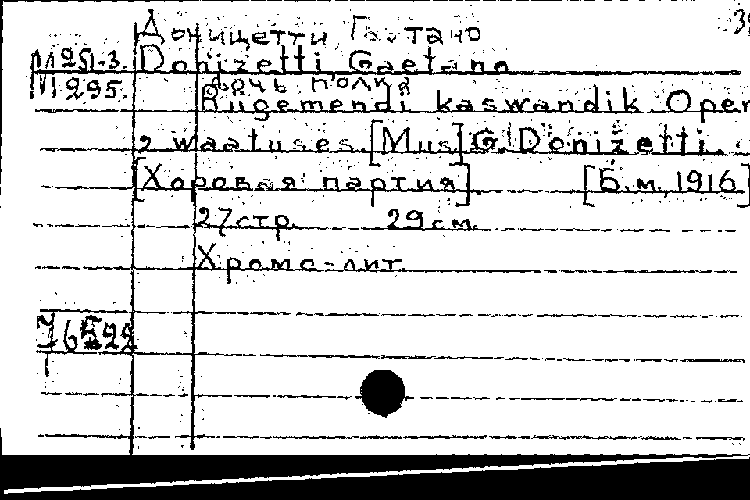 Доницетти Гаэтано
М251-3. Donizetti Gaetano
М295. Дочь полка
Rügemendi kaswandik Oper
2 waatuses. [Mus] G. Donizetti.
[Хоровая партия]. [Б.м. 1916]
27 стр. 29 см.
Хромо-лит.